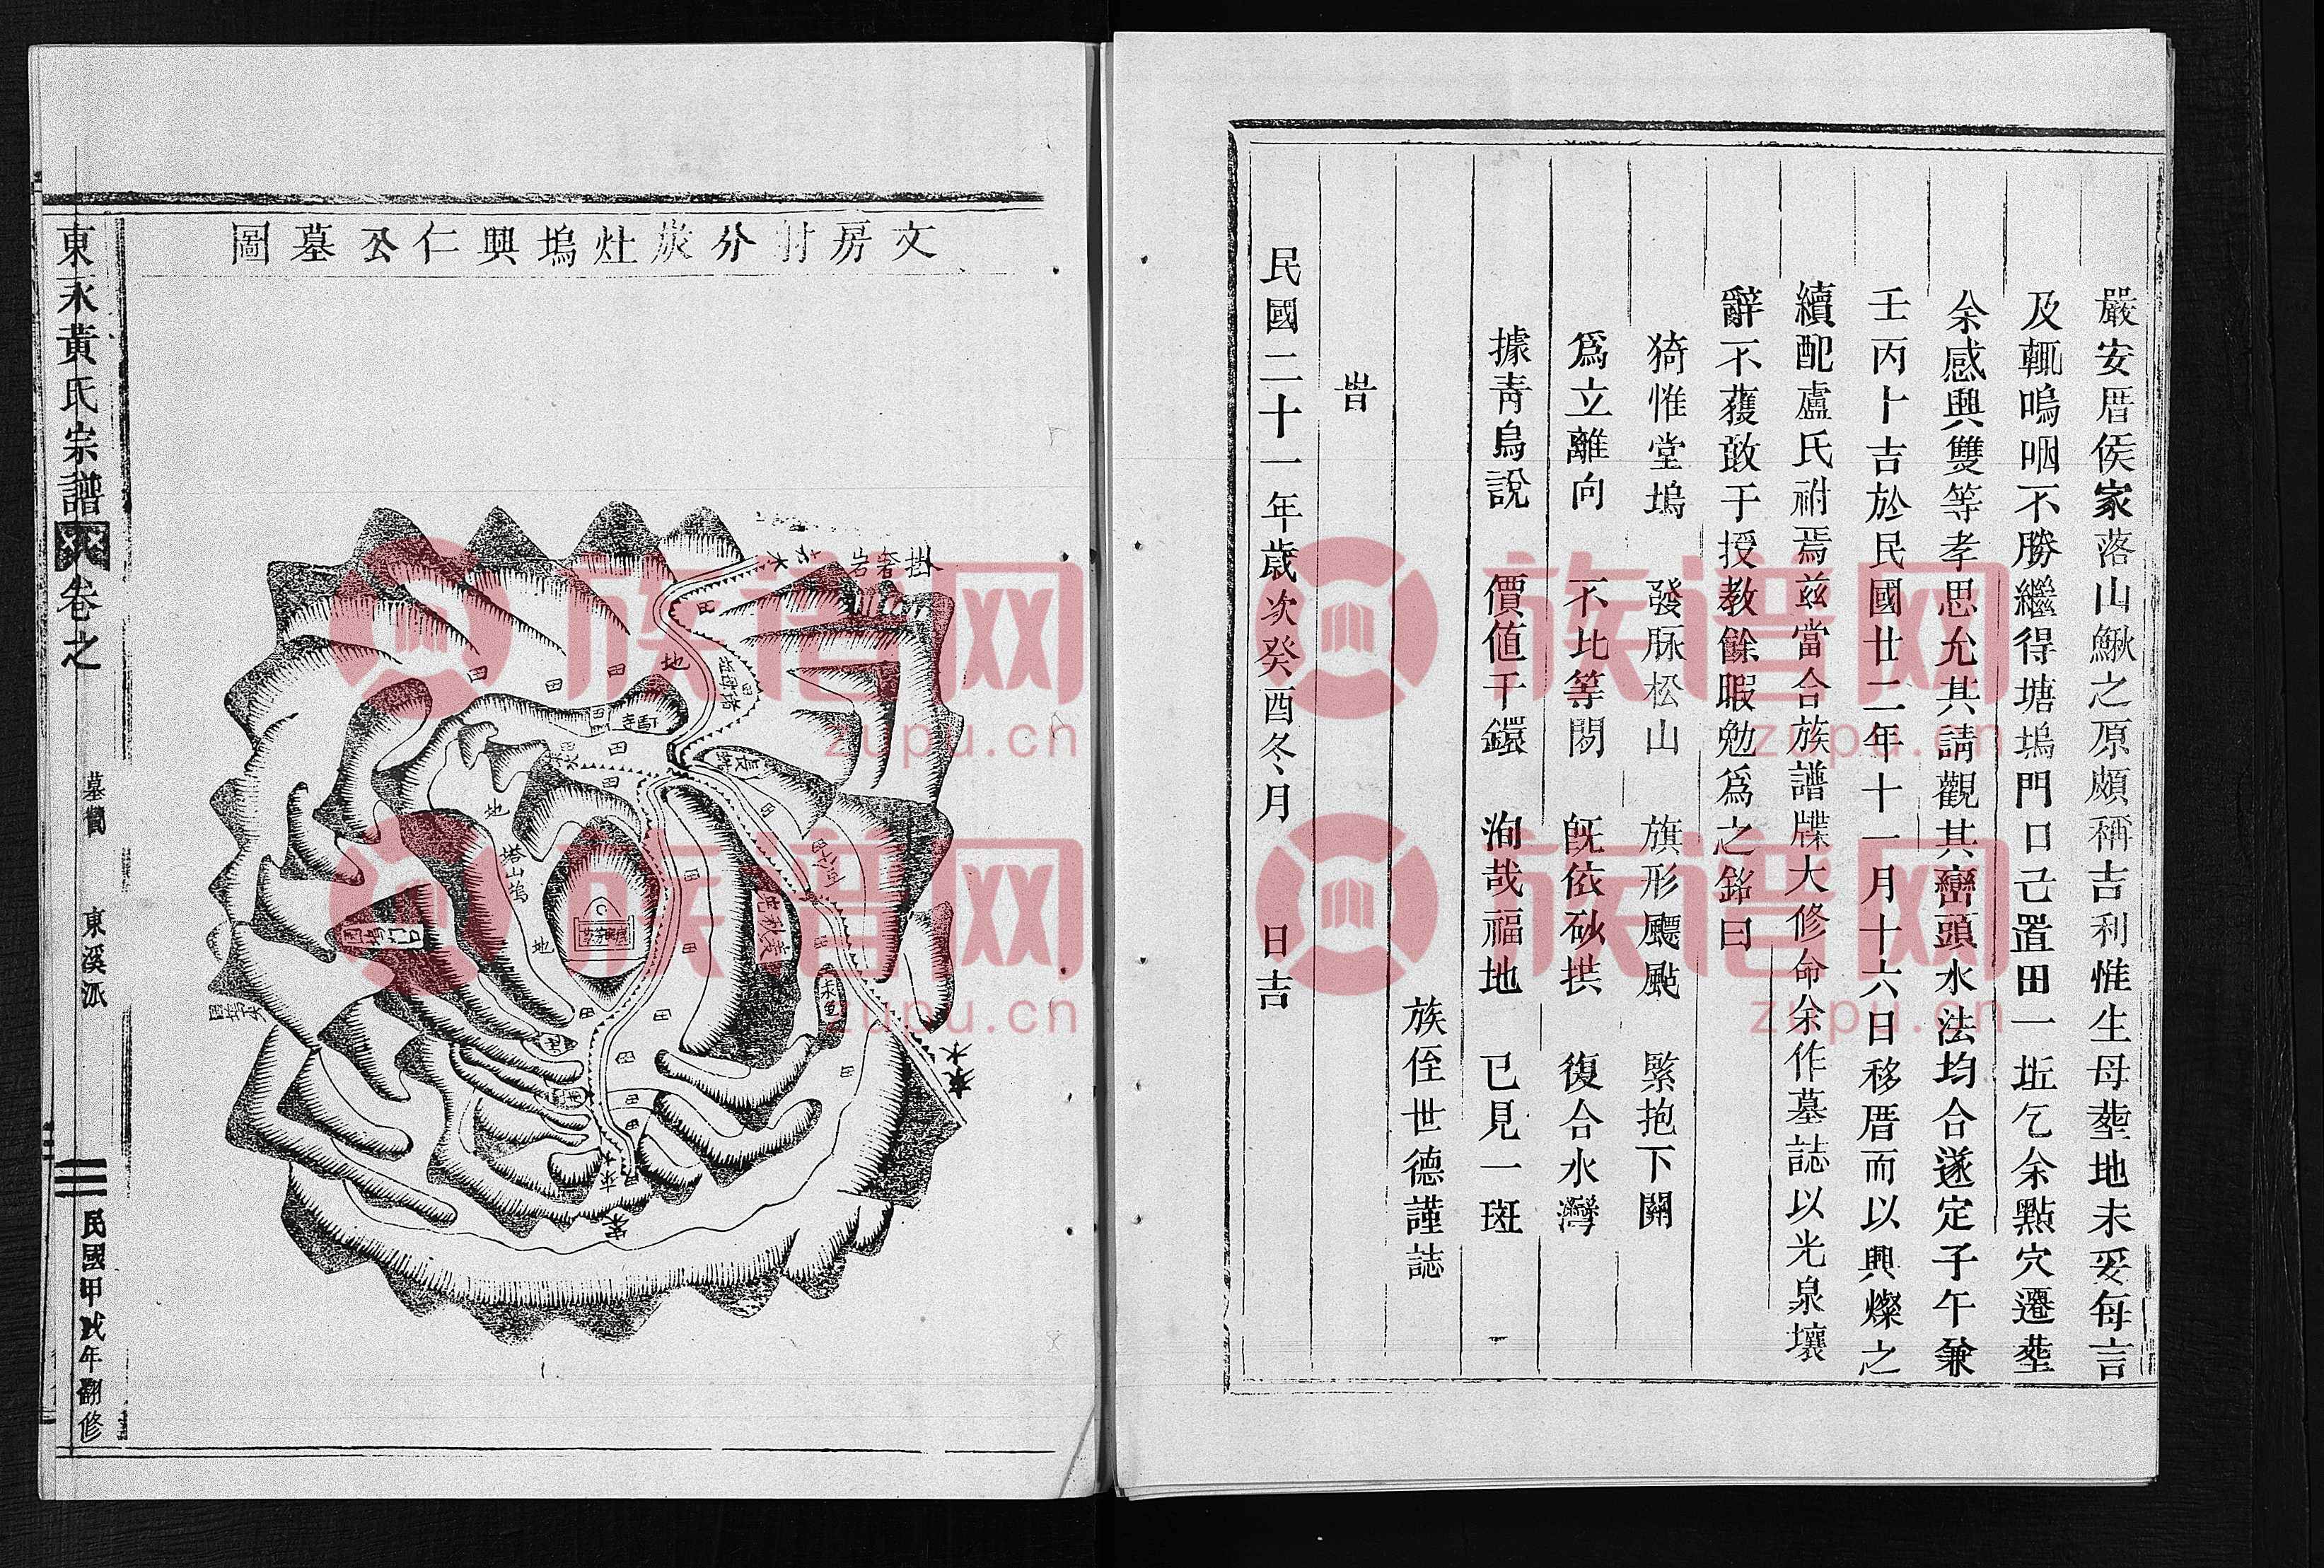 嚴安厝侯家落山鰍之原頗稱吉利惟生母塟地未妥每言
及輒嗚咽不勝繼得塘塢門口己置田一坵乞余點穴遷塟
余感興雙等孝思允其請觀其巒頭水法均合遂定子午兼
壬丙卜吉於民國廿二年十一月十六日移厝而以興燦之
續配盧氏祔焉兹當合族譜牒大修命余作墓誌以光泉壤
辭不獲敢于授教餘暇勉爲之銘曰
猗惟堂塢 發脉松山 旗形颺颭 緊抱下關
爲立離向 不比等閒 旣依砂拱 復合水灣
據靑烏說 價値千鐶 洵哉福地 已見一斑
族侄世德謹誌
旹
民國二十一年歲次癸酉冬月 日吉
文房村分旅灶塢興仁公墓圖
掛奢岩
地
田
塔山塢
地
田
東永黃氏宗譜
卷之
墓圖
東溪派
民國甲戌年翻修
族谱网
zupu.cn
族谱网
zupu.cn
族谱网
zupu.cn
族谱网
zupu.cn